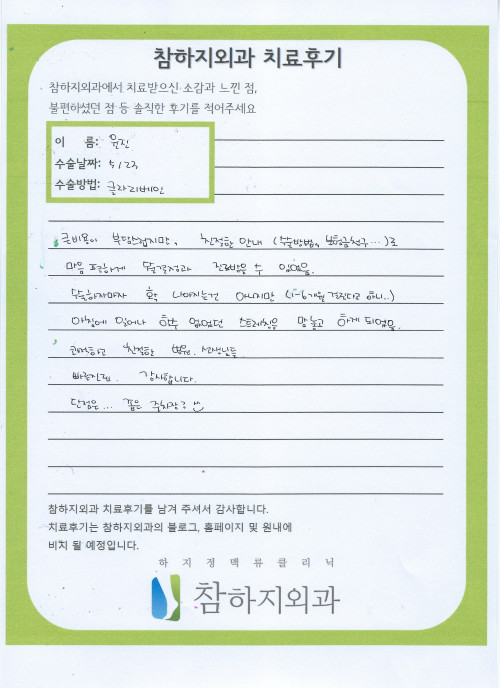 참하지외과 치료후기
참하지외과에서 치료받으신 소감과 느낀 점,
불편하셨던 점 등 솔직한 후기를 적어주세요
이 름: 유진
수술날짜: 5/23
수술방법: 클라리베인
큰비용이 부담스럽지만, 친절한 안내 (수술방법, 보험금청구...)로
마음 편하게 수술결정과 진료받을 수 있었음.
수술하자마자 확 나아지는건 아니지만 (1-6개월 걸린다고 하니..)
아침에 일어나 할수 없었던 스트레칭을 맘놓고 하게 되었음.
친절한 선생님들
빠른진료. 감사합니다.
단점은... 좁은 주차장? ☺
참하지외과 치료후기를 남겨 주셔서 감사합니다.
치료후기는 참하지외과의 블로그, 홈페이지 및 원내에
비치 될 예정입니다.
하지정맥류클리닉
참하지외과